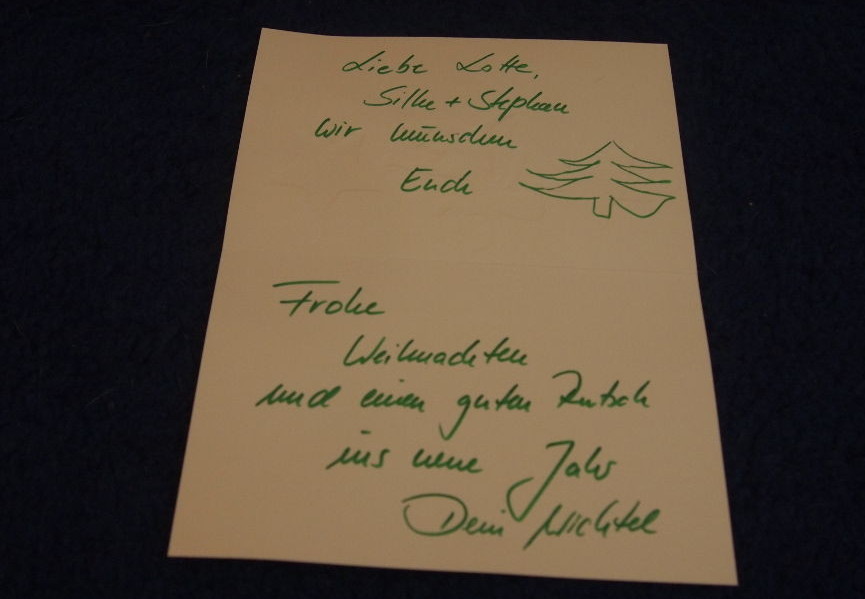 Liebe Lotte,
Silke + Stephan
wir wünschen
Euch
Frohe
Weihnachten
und einen guten Rutsch
ins neue Jahr
Dein Wichtel